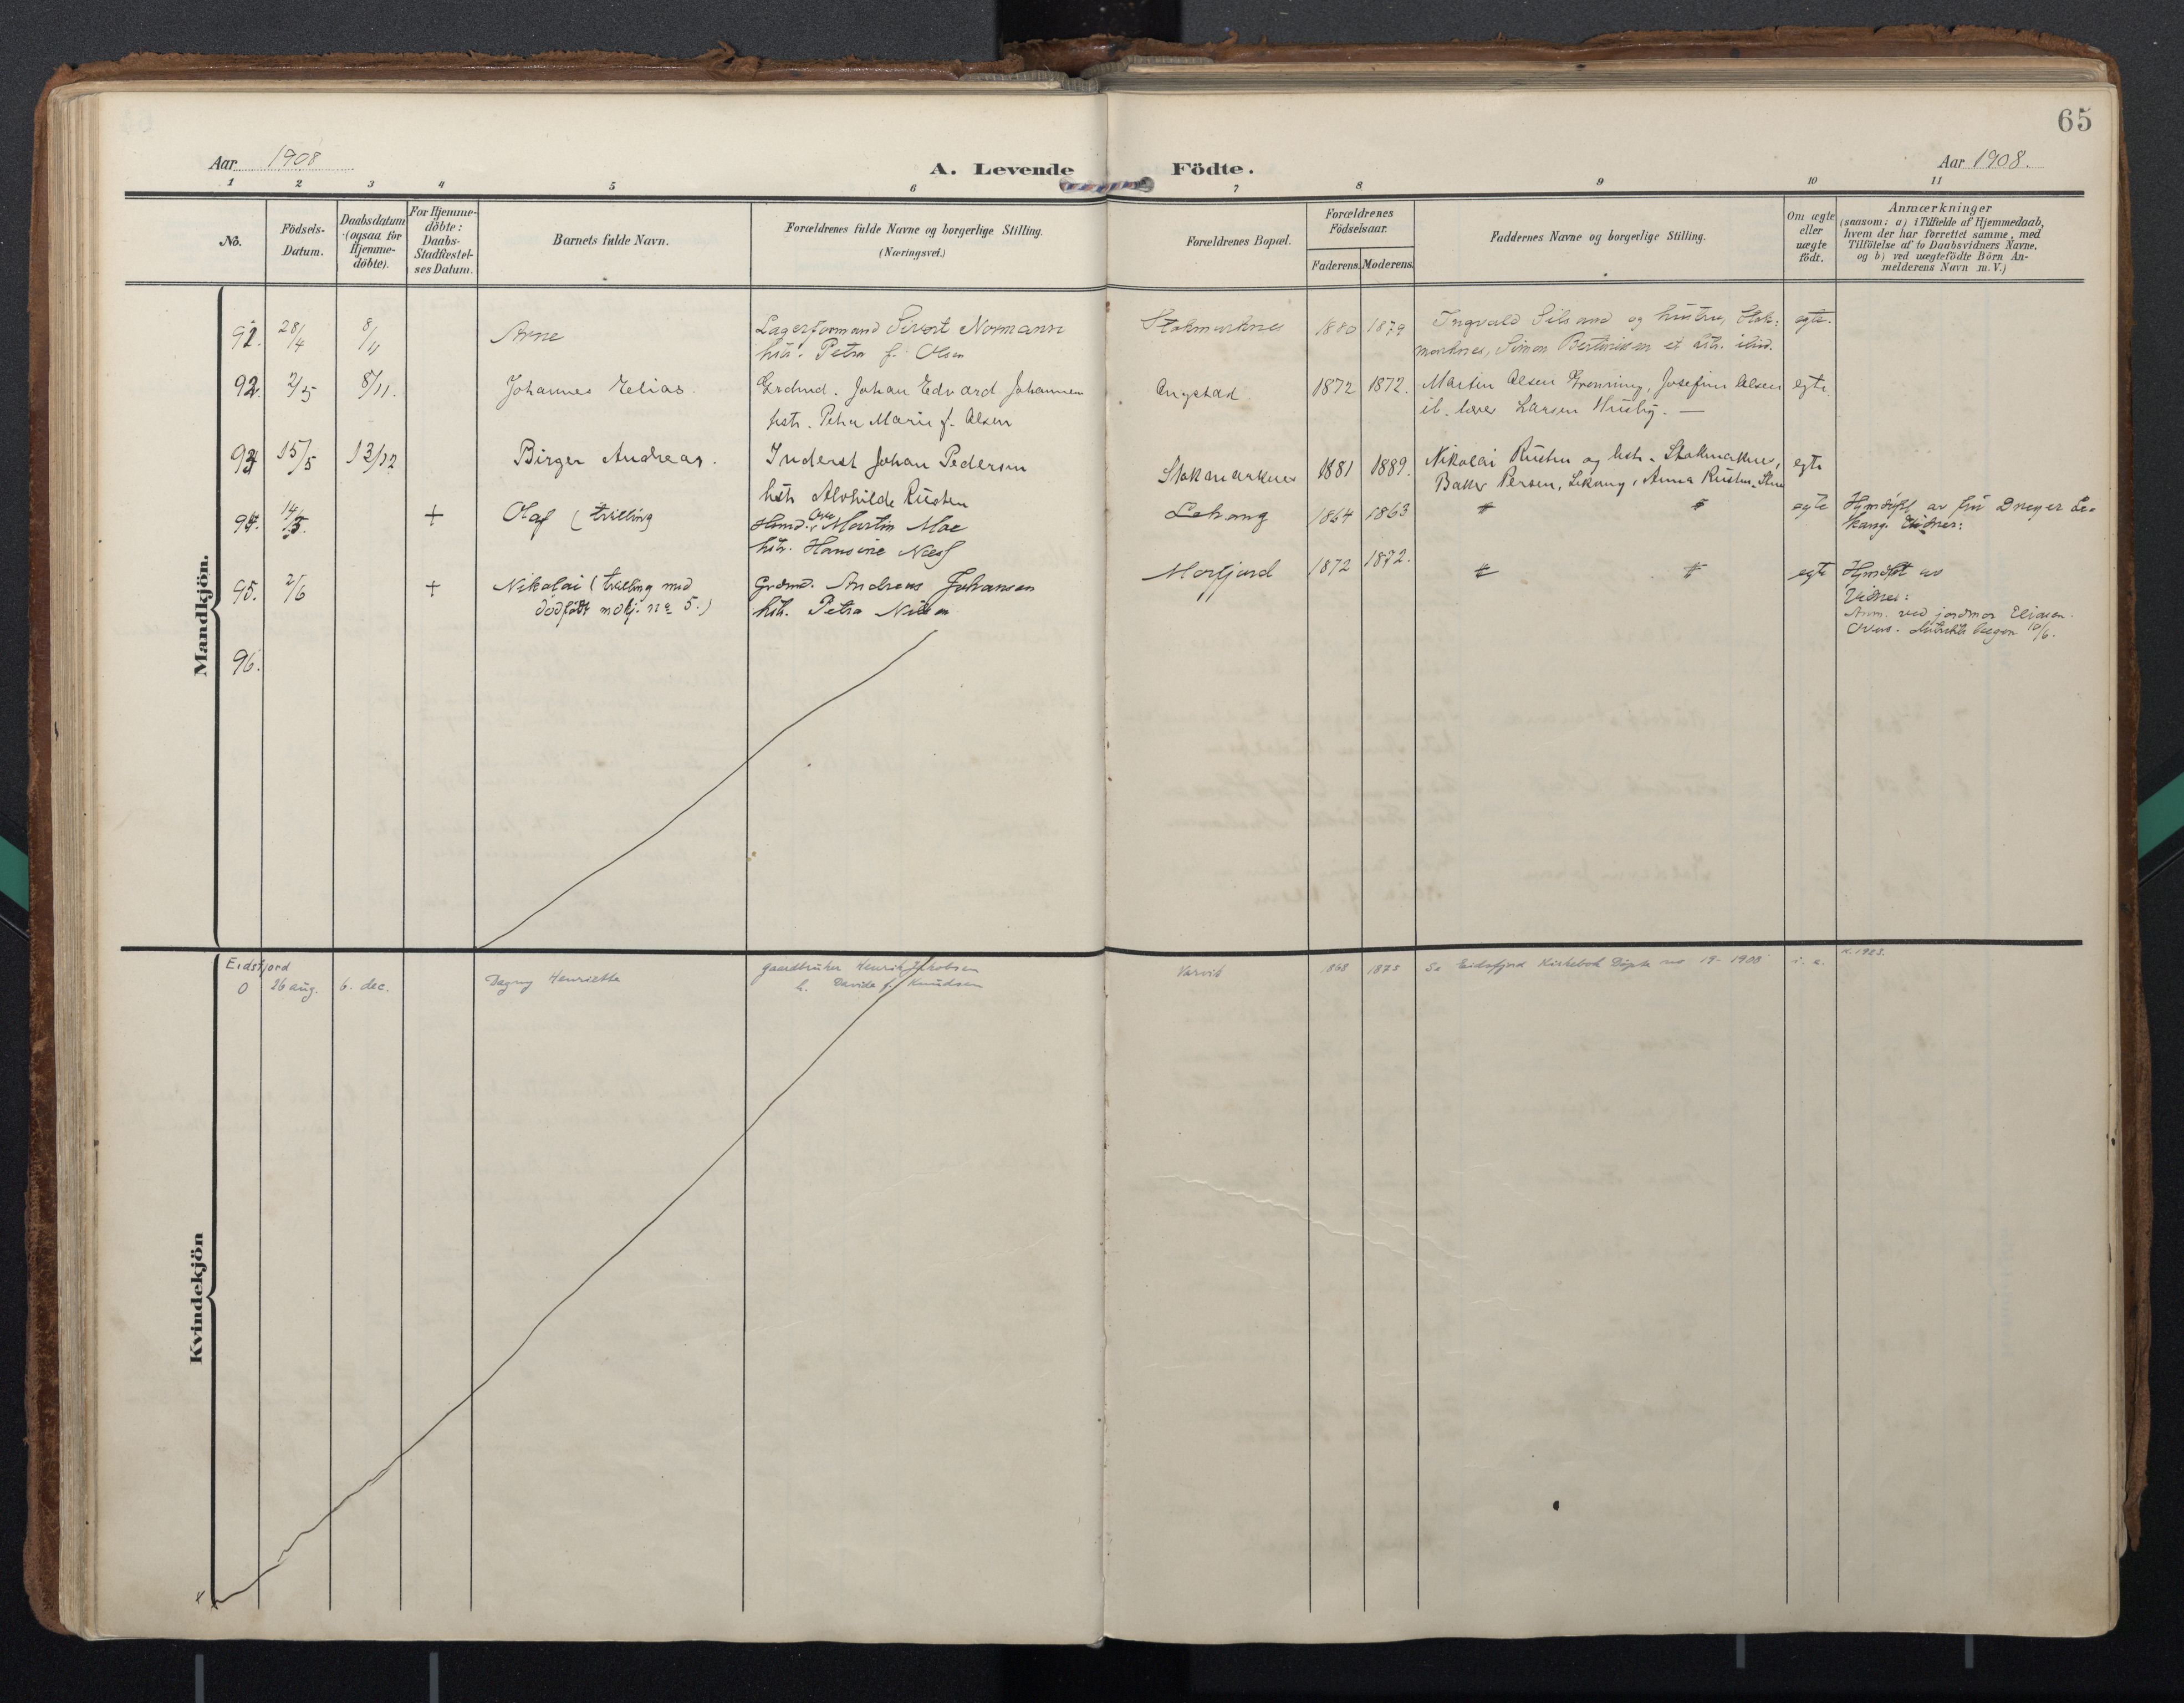 65
Aar 1908
A. Levende Födte.
Aar 1908.
1 2 3 4 5 6 7 8 9 10 11
No.
Födsels-Datum.
Daabsdatum (ogsaa for Hjemme-döbte).
For Hjemme-döbte: Daabs-Stadfæstel-ses Datum.
Barnets fulde Navn.
Forældrenes fulde Navne og borgerlige Stilling.
(Næringsvei.)
Forældrenes Bopæl.
Forældrenes Födselsaar.
Faderens. Moderens.
Faddernes Navne og borgerlige Stilling.
Om ægte eller uægte födt.
Anmærkninger
(saasom: a) i Tilfælde af Hjemmedaab,
hvem der har forrettet samme, med
Tilföielse af to Daabsvidners Navne,
og b) ved uægtefödte Börn An-
melderens Navn m. V.)
Mandkjön.
91. 28/4 8/11 Arne Lagerformand Sivert Normann Stokmarknes 1880 1879 Ingvald Silsand og hustru, Stok- egte.
hstr. Petra f. Olsen marknes, Simon Bertinsen et hstr. ibid.
92. 2/5 8/11. Johannes Elias. Grdmd. Johan Edvard Johannesen 1872 1872. Martin Olsen Grønning, Josefine Olsen egte
hstr. Petra Marie f. Olsen ib. Larsen Husby. —
93 15/5 13/12 Birger Andreas. Inderst Johan Pedersen Stokmarknes 1881 1889. Nikolai Rusten og hstr. Stokmarknes, egte
hstr Alvhilde Rusten Persen, Lekang, Anna Rusten, Stm
94. 14/3. + Olaf (tvilling Husmd. Ove Martin Moe Lekang 1864 1863 egte Hjmdøpt av fru Dreyer Le-
hstr. Hansine Næss kang. Vidner:
95. 2/6 + Nikolai (tvilling med Grdmd. Andreas Johansen Morfjord 1872 1872. egte Hjmdøbt av
dødfødt mdkj. no 5.) hstr. Petra Nilsen Vidner:
Anm. ved jordmor Eliasen.
10/6.
96.
Kvindekjön
Eidsfjord
0 26 aug. 6. dec. Dagny Henriette gaardbruker Henrik Jakobsen Varvik 1868 1875 Se Eidsfjord Kirkebok Døpte no 19 - 1908 k. 1923.
h. Davida f. Knudsen